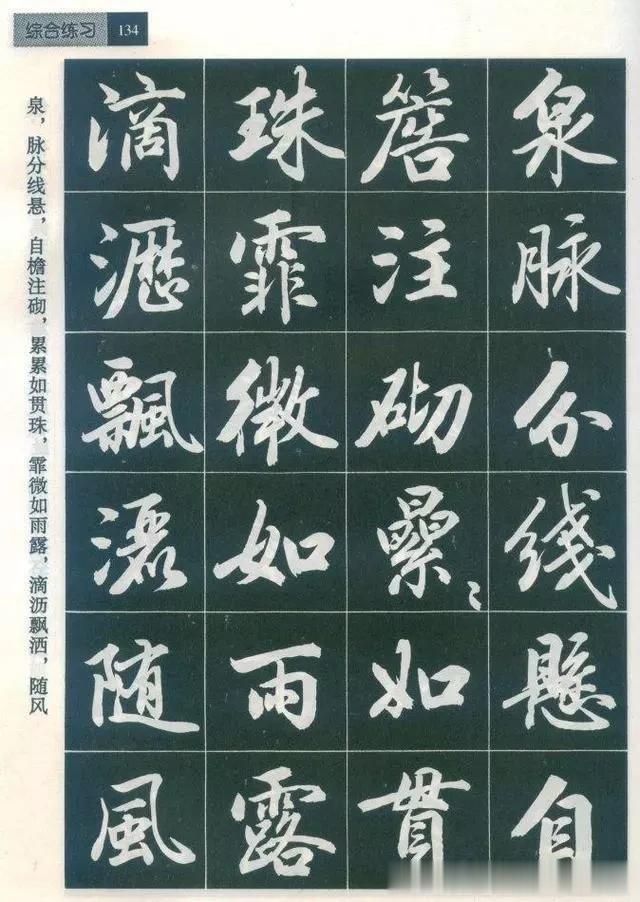 综合练习 134
泉脉分綫懸自
簷注砌纍々如貫
珠霏微如雨露
滴瀝飄灑随風
泉，脉分线悬，自檐注砌，累累如贯珠，霏微如雨露，滴沥飘洒，随风